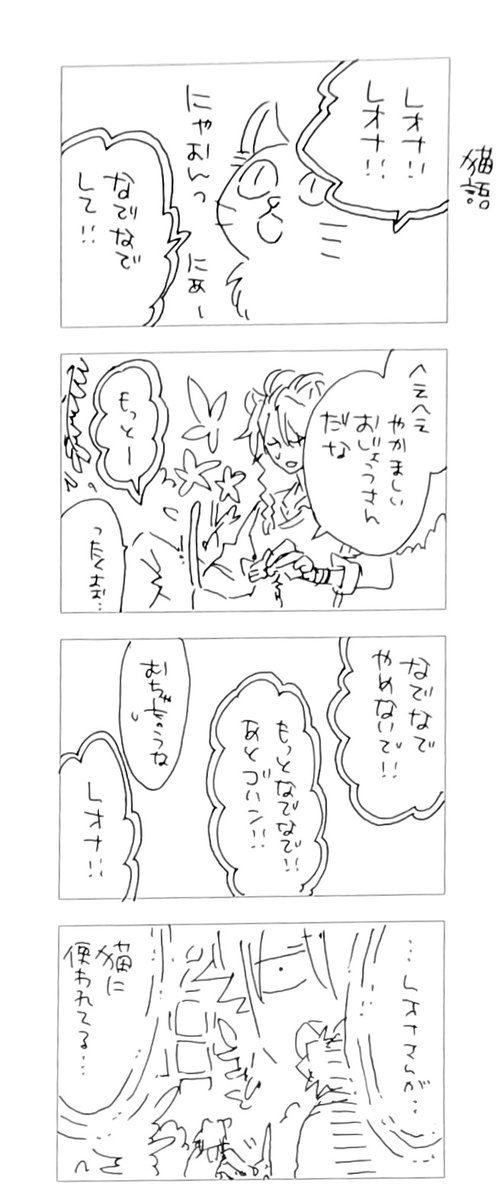 猫語
レオナ!!
レオナ!!
にゃおんっ
にぁー
なでなで
して!!
へえへえ
やかましい
おじょうさん
だな
もっとー
ったくよぉ…
なでなで
やめないで!!
もっとなでなで!!
あとゴハン!!
むちゃ言うな
レオナ!!
…レオナさんが…
猫に
使われてる…